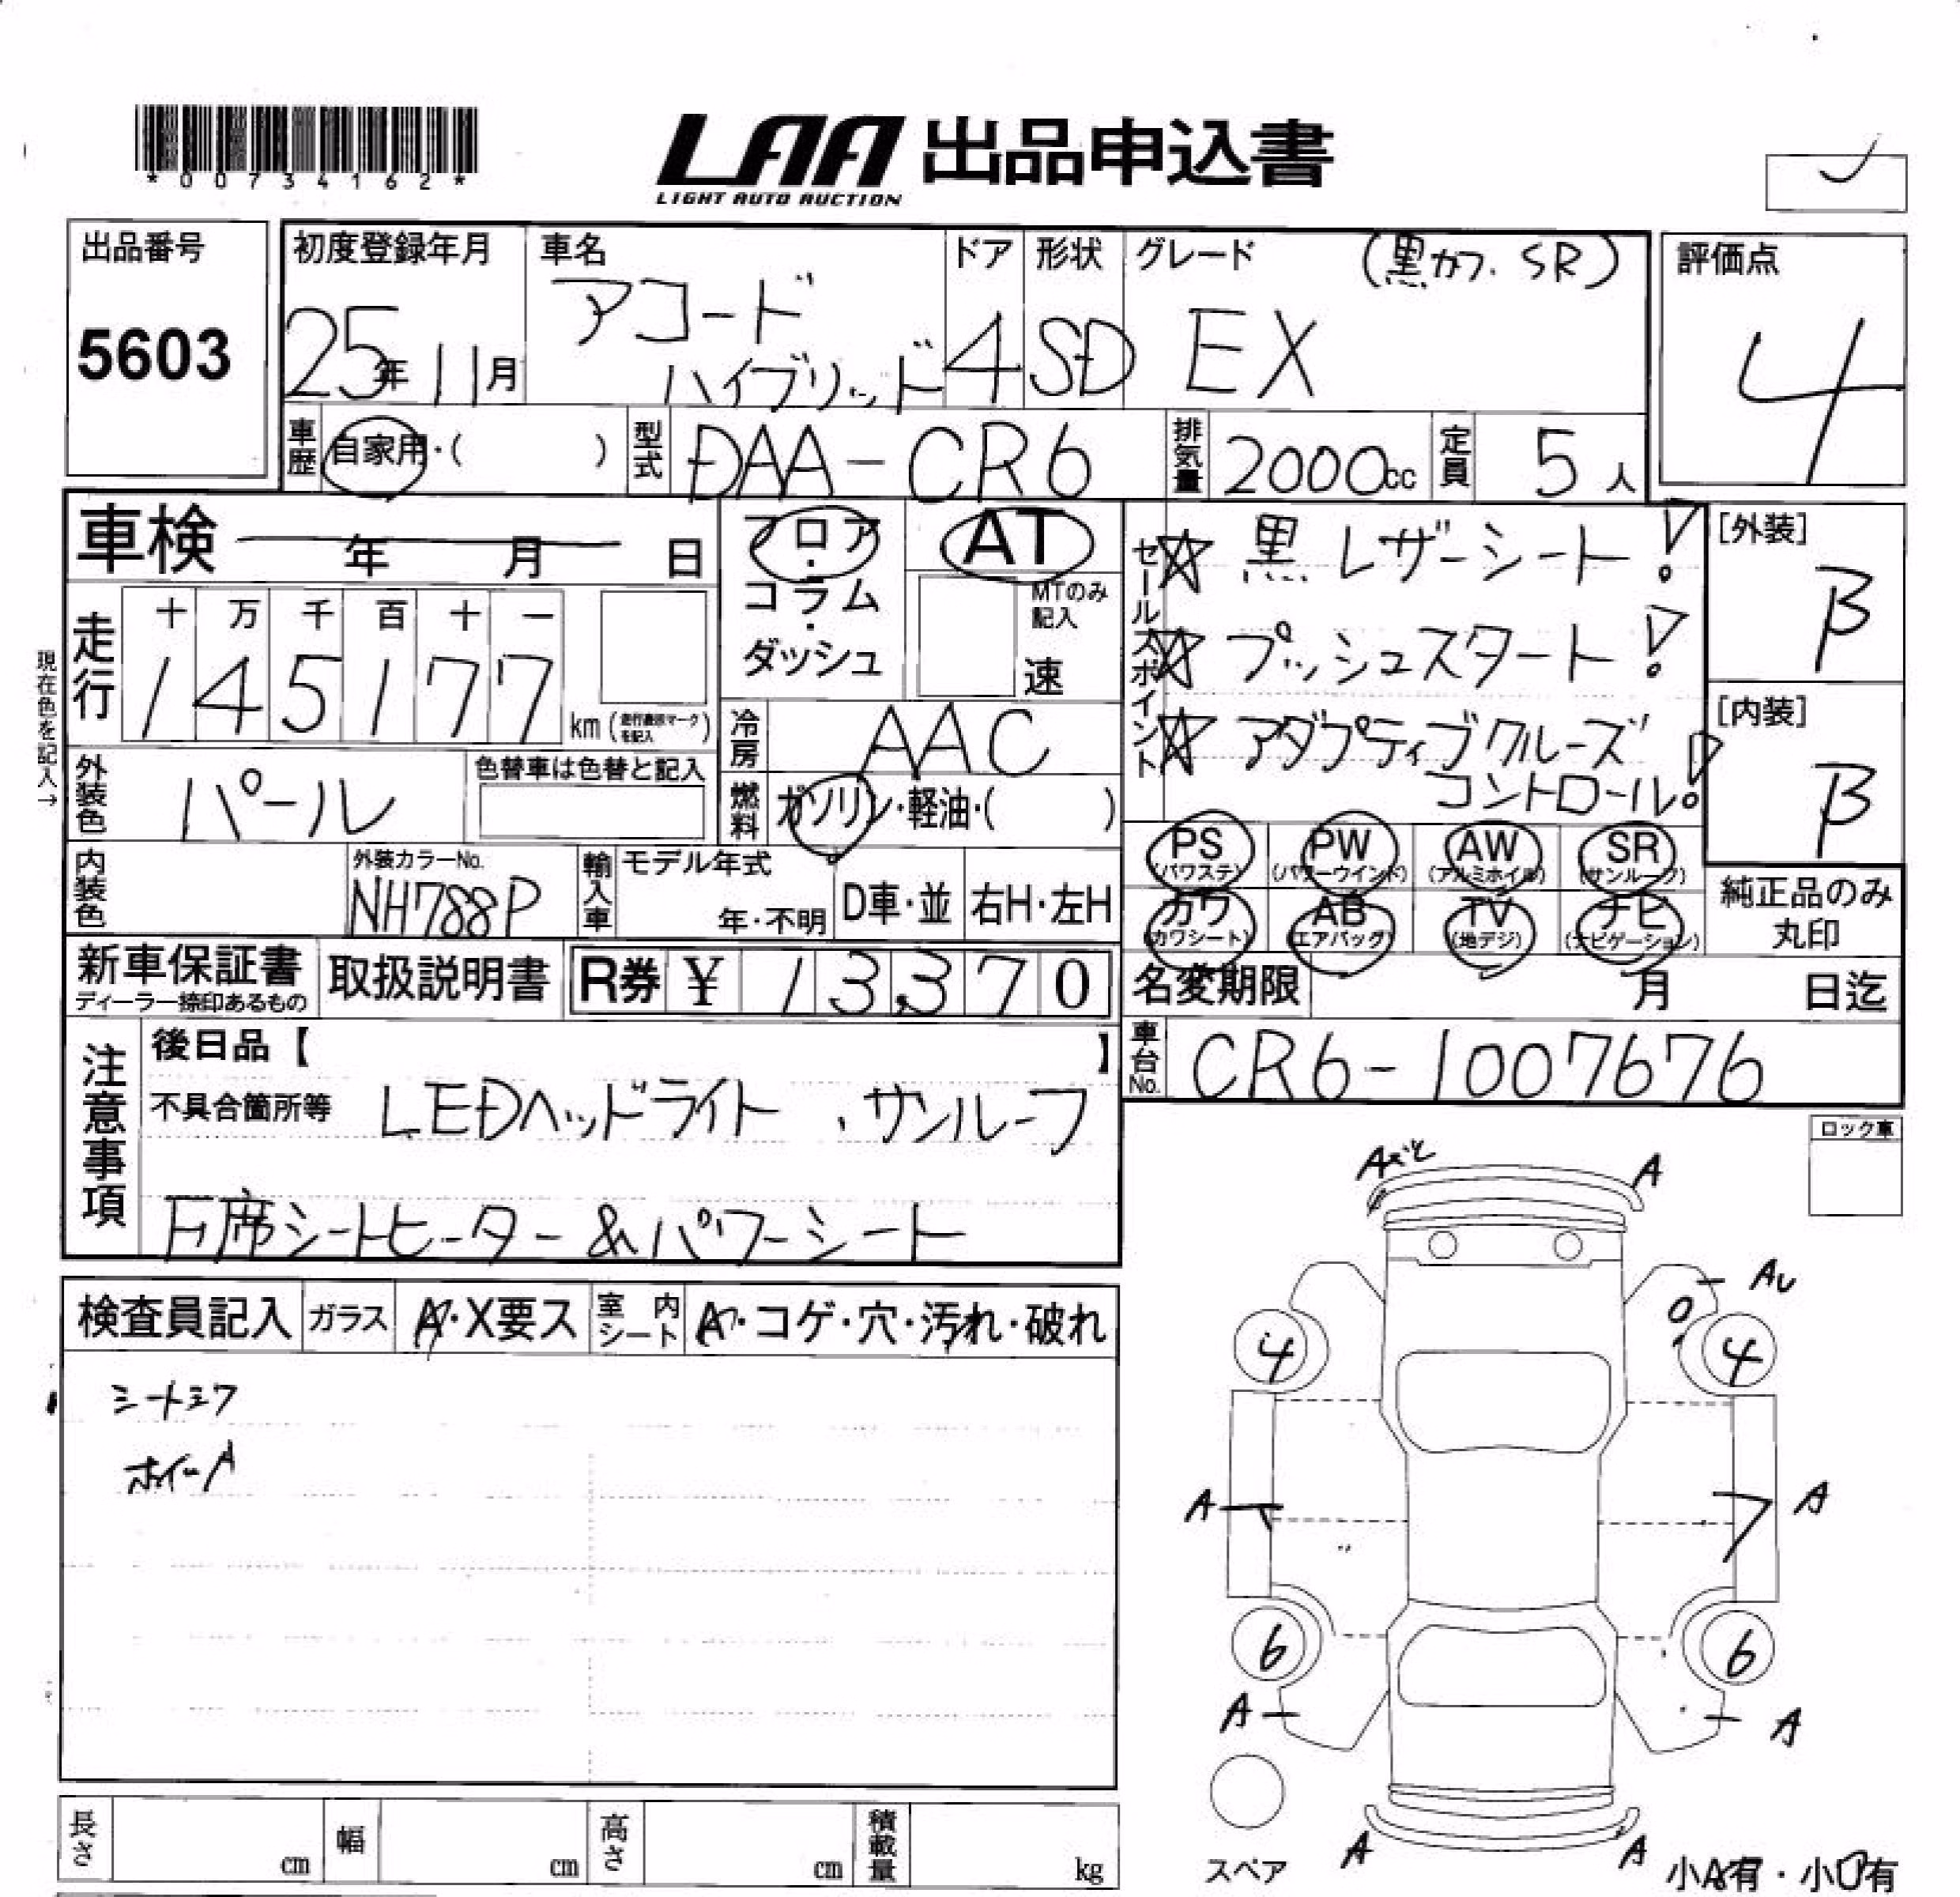 *00734162*
LAA 出品申込書
LIGHT AUTO AUCTION
出品番号
5603
初度登録年月
25年11月
車名
アコード
ハイブリッド
ドア
4
形状
SD
グレード
(黒カワ. SR)
EX
評価点
4
車歴
自家用・( )
型式
DAA-CR6
排気量
2000cc
定員
5人
車検 年 月 日
フロア・コラム・ダッシュ
AT
MTのみ記入
速
走行
十 万 千 百 十 一
145177
km
現在色を記入→
冷房
AAC
燃料
ガソリン・軽油・( )
外装色
パール
色替車は色替と記入
内装色
外装カラーNo.
NH788P
輸入車
モデル年式
年・不明
D車・並
右H・左H
セールスポイント
☆黒レザーシート!
☆プッシュスタート!
☆アダプティブクルーズ
コントロール!
[外装]
B
[内装]
B
PS
(パワステ)
PW
(パワーウインド)
AW
(アルミホイル)
SR
(サンルーフ)
カワ
(カワシート)
AB
(エアバッグ)
TV
(地デジ)
ナビ
(ナビゲーション)
純正品のみ
丸印
新車保証書
ディーラー捺印あるもの
取扱説明書
R券 ¥ 13,370
名変期限 月 日迄
車台No.
CR6-1007676
注意事項
後日品【 】
不具合箇所等 LEDヘッドライト、サンルーフ
席シートヒーター&パワーシート
ロック車
検査員記入
ガラス
A・X要ス
室内シート
コゲ・穴・汚れ・破れ
シート
A
A
A
AU
4
4
A
A
6
6
A
A
A
A
スペア
小A有・小U有
長さ cm
幅 cm
高さ cm
積載量 kg